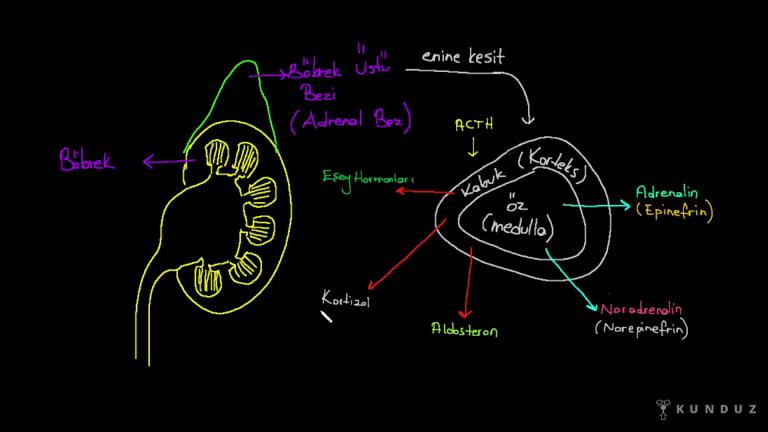 Böbrek Üstü
Bezi
(Adrenal Bez)
enine kesit
Böbrek
ACTH
Kabuk (Korteks)
Öz
(medulla)
Eşey Hormonları
Adrenalin
(Epinefrin)
Kortizol
Aldosteron
Noradrenalin
(Norepinefrin)
KUNDUZ